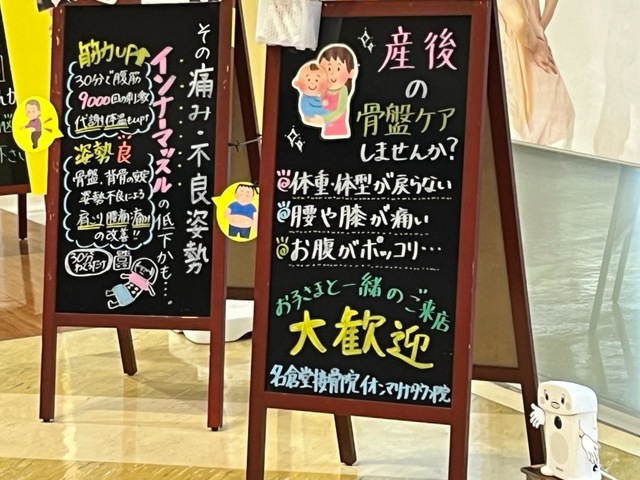 その痛み・不良姿勢
インナーマッスル
の低下かも…。
筋力UP↑
30分で腹筋
9000回の刺激
代謝・体温もUP↑
姿勢良
骨盤、背骨の安定
姿勢不良による
肩こり、腰痛
の改善!!
30分
産後
の
骨盤ケア
しませんか?
体重・体型が戻らない
腰や膝が痛い
お腹がポッコリ…
お子さまと一緒のご来店
大歓迎
名倉堂接骨院イオンマリナタウン院